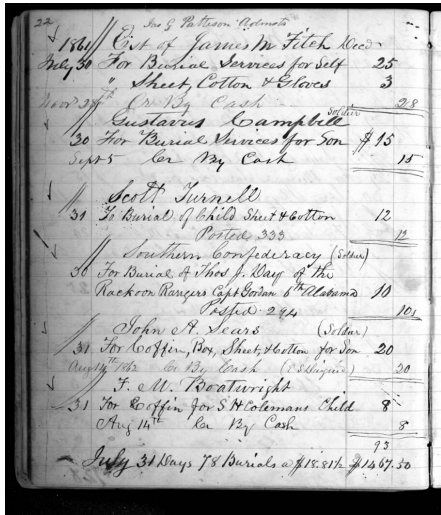 22 Jas G Pattison Admstr
1861 Est of James M Fitch Decd
July 30 For Burial Services for Self 25
" Sheet, Cotton & Gloves 3
Novr 28th Cr By Cash 28
Gustavus Campbell Soldier
30 For Burial Services for Son $15
Sept 5 Cr By Cash 15
Scott Turnell
30 To Burial of Child Sheet & Cotton 12
Posted 333 12
Southern Confederacy (Soldier)
30 For Burial of Thos J. Day of the
Rackoon Rangers Capt Gordan 6th Alabama 10
Posted 294 10
John A. Sears (Soldier)
31 For Coffin, Box, Sheet, & Cotton for Son 20
Aug 14th 1862 Cr By Cash 20
F. M. Boatwright
31 For Coffin for S H Colemans Child 8
Aug 14th Cr By Cash 8
93
July 31 Days 78 Burials a $18.81½ $1467.50